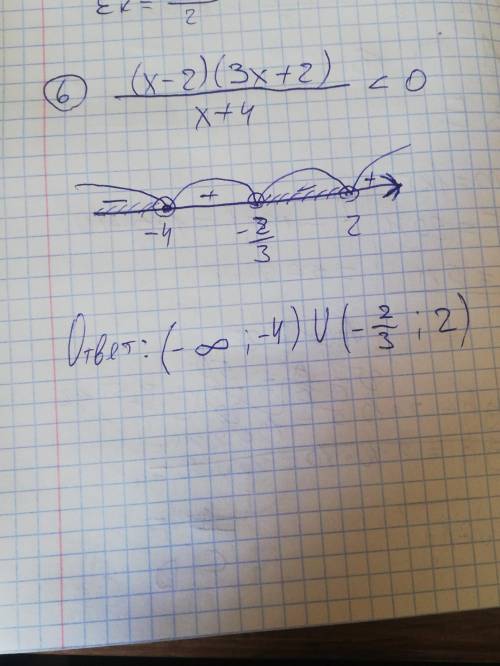 Σk = 
2
6 (x-2)(3x+2) / x+4 < 0
- + - +
-4 -2/3 2
Ответ: (-∞; -4) U (-2/3; 2)